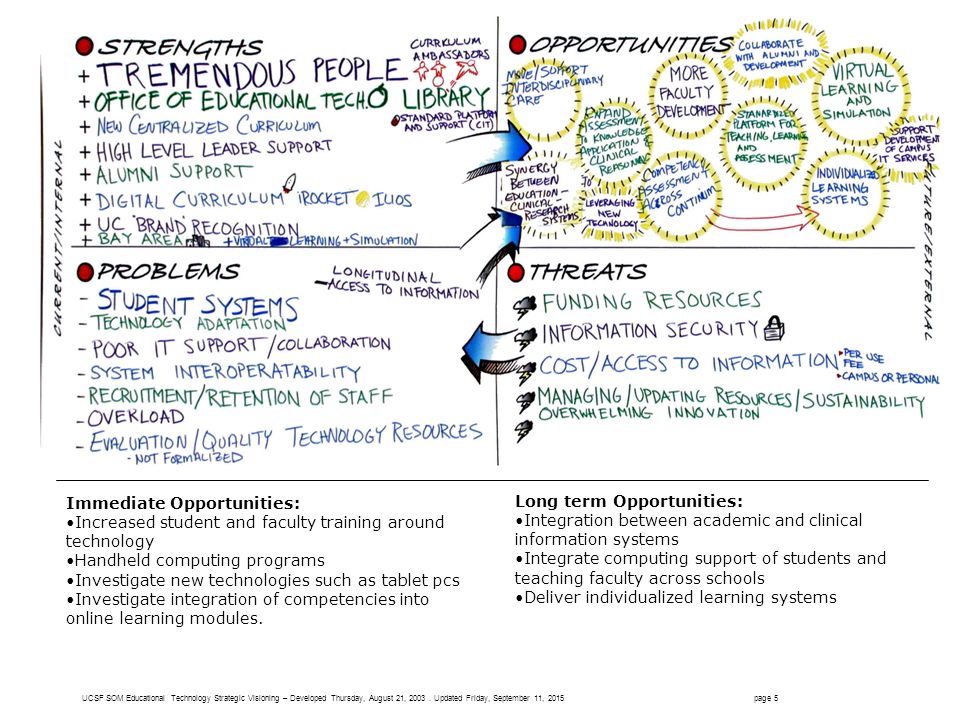 STRENGTHS
CURRKULUM
AMBASSADORS
+ TREMENDOUS PEOPLE
+ OFFICE OF EDUCATIONAL TECH. LIBRARY
STANDARD PLATFORM
AND SUPPORT (CIT)
+ NEW CENTRALIZED CURRICULUM
+ HIGH LEVEL LEADER SUPPORT
+ ALUMNI SUPPORT
+ DIGITAL CURRICULUM iROCKET ILIOS
+ UC BRAND RECOGNITION
+ BAY AREA + VIRTUAL LEARNING + SIMULATION
CURRENT/INTERNAL
OPPORTUNITIES
COLLABORATE
WITH ALUMNI AND
DEVELOPMENT
MOVE/SUPPORT
INTERDISCIPLINARY
CARE
MORE
FACULTY
DEVELOPMENT
VIRTUAL
LEARNING
AND
SIMULATION
EXPAND
ASSESSMENT
TO KNOWLEDGE
APPLICATION &
CLINICAL
REASONING
STANARDIZED
PLATFORM FOR
TEACHING, LEARNING
AND
ASSESSMENT
SUPPORT
DEVELOPMENT
OF CAMPUS
IT SERVICES
SYNERGY
BETWEEN
EDUCATION-
CLINICAL-
RESEARCH
SYSTEMS
LEVERAGING
NEW
TECHNOLOGY
COMPETENCY
ASSESSMENT
ACROSS
CONTINUM
INDIVIDUALIZED
LEARNING
SYSTEMS
FUTURE/EXTERNAL
PROBLEMS
- LONGITUDINAL
ACCESS TO INFORMATION
- STUDENT SYSTEMS
- TECHNOLOGY ADAPTATION
- POOR IT SUPPORT/COLLABORATION
- SYSTEM INTEROPERATABILITY
- RECRUITMENT/RETENTION OF STAFF
- OVERLOAD
- EVALUATION/QUALITY TECHNOLOGY RESOURCES
- NOT FORMALIZED
THREATS
FUNDING RESOURCES
INFORMATION SECURITY
COST/ACCESS TO INFORMATION
• PER USE
FEE
• CAMPUS OR PERSONAL
MANAGING/UPDATING RESOURCES/SUSTAINABILITY
OVERWHELMING INNOVATION
Immediate Opportunities:
•Increased student and faculty training around
technology
•Handheld computing programs
•Investigate new technologies such as tablet pcs
•Investigate integration of competencies into
online learning modules.
Long term Opportunities:
•Integration between academic and clinical
information systems
•Integrate computing support of students and
teaching faculty across schools
•Deliver individualized learning systems
UCSF SOM Educational Technology Strategic Visioning – Developed Thursday, August 21, 2003 . Updated Friday, September 11, 2015 page 5